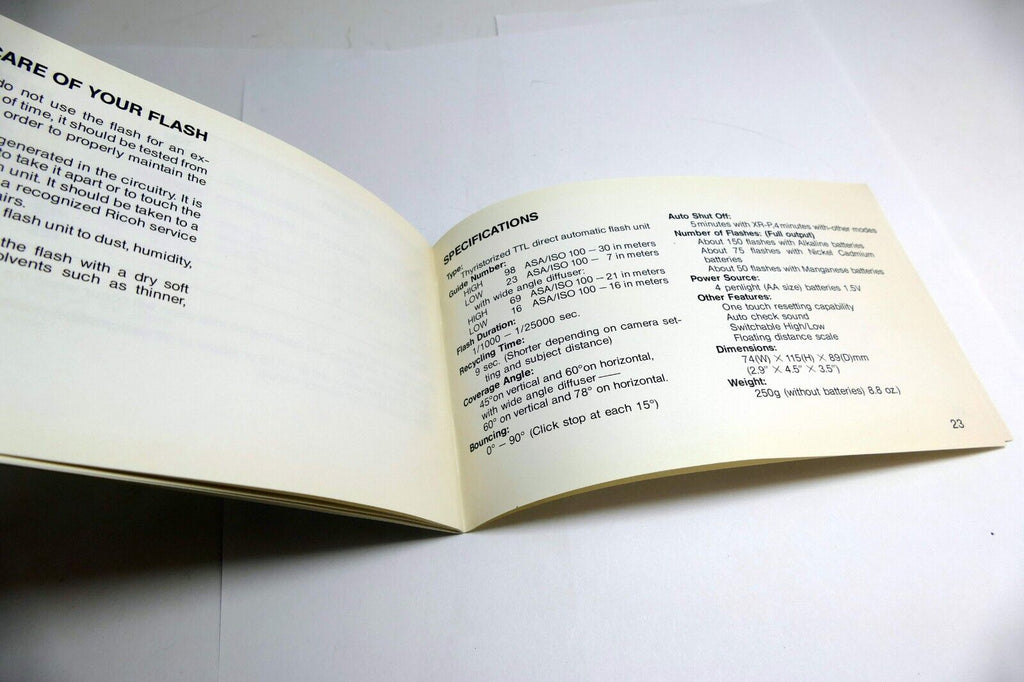 CARE OF YOUR FLASH
do not use the flash for an ex-
of time, it should be tested from
order to properly maintain the
generated in the circuitry. It is
to take it apart or to touch the
unit. It should be taken to a
a recognized Ricoh service
flash unit to dust, humidity,
the flash with a dry soft
such as thinner,
SPECIFICATIONS
Type: Thyristorized TTL direct automatic flash unit
Guide Number:
HIGH 98 ASA/ISO 100 – 30 in meters
LOW 23 ASA/ISO 100 – 7 in meters
with wide angle diffuser:
HIGH 69 ASA/ISO 100 – 21 in meters
LOW 16 ASA/ISO 100 – 16 in meters
Flash Duration:
1/1000 – 1/25000 sec.
Recycling Time:
9 sec. (Shorter depending on camera set-
ting and subject distance)
Coverage Angle:
45° on vertical and 60° on horizontal,
with wide angle diffuser ——
60° on vertical and 78° on horizontal.
Bouncing:
0° – 90° (Click stop at each 15°)
Auto Shut Off:
5 minutes with XR-P, 4 minutes with other modes
Number of Flashes: (Full output)
About 150 flashes with Alkaline batteries
About 75 flashes with Nickel Cadmium
batteries
About 50 flashes with Manganese batteries
Power Source:
4 penlight (AA size) batteries 1.5V
Other Features:
One touch resetting capability
Auto check sound
Switchable High/Low
Floating distance scale
Dimensions:
74(W) × 115(H) × 89(D)mm
(2.9" × 4.5" × 3.5")
Weight:
250g (without batteries) 8.8 oz.)
23